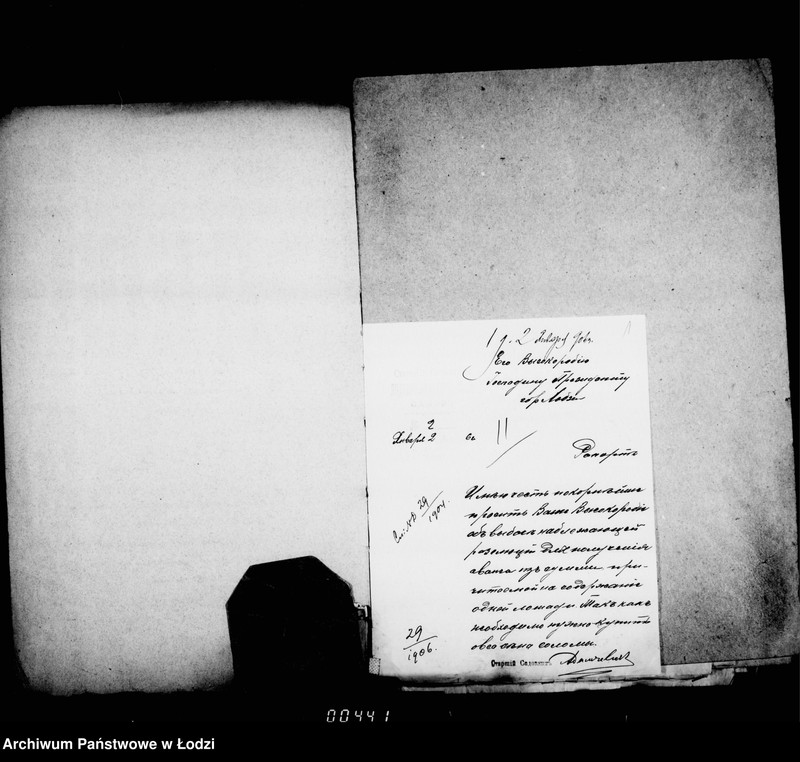 19. 2 Января 906.
Его Высокородію
Господину Президенту
гор. Лодзи
2
Января 2
11
Рапортъ
29
1904.
Имѣю честь покорнѣйше
просить Ваше Высокородіе
объ выдачѣ
для полученія
аванса изъ суммы при-
читаемой на содержаніе
одной лошади. Такъ какъ
необходимо нужно купить
овса сѣна соломы.
29
1906.
Старшій Садовникъ
00441
Archiwum Państwowe w Łodzi